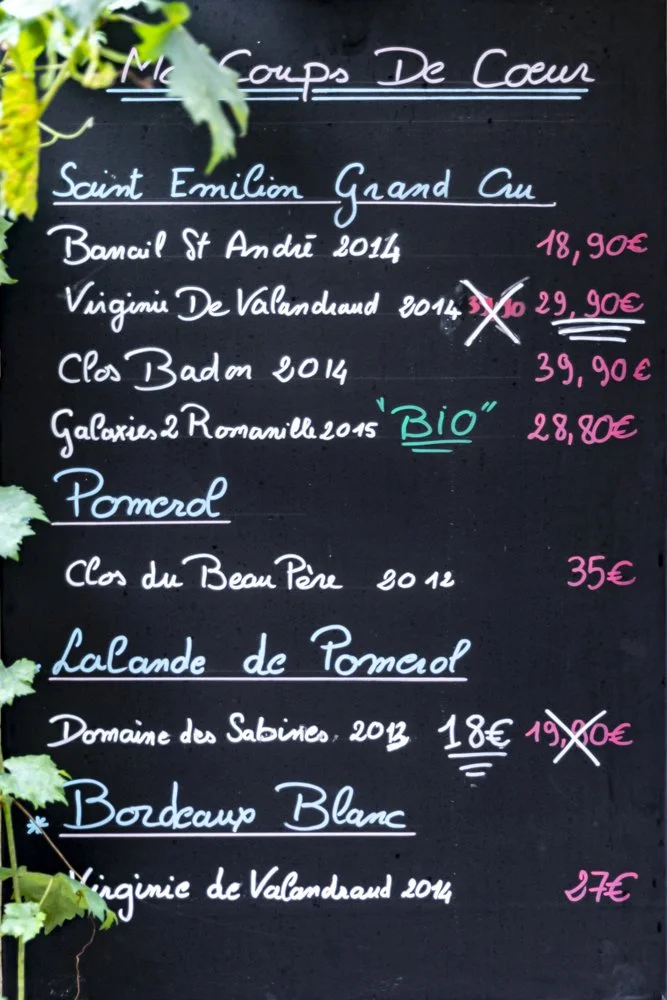 Coups De Coeur
Saint Emilion Grand Cru
Banail St André 2014 18,90€
Virginie De Valandraud 2014 29,90€
Clos Badon 2014 39,90€
Galaxies 2 Romanille 2015 "BiO" 28,80€
Pomerol
Clos du Beau Père 2012 35€
Lalande de Pomerol
Domaine des Sabines 2013 18€ 19,80€
* Bordeaux Blanc
Virginie de Valandraud 2014 27€